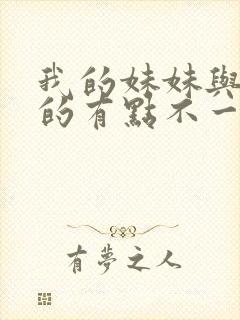 我的妹妹與
的有點不一
有夢之人